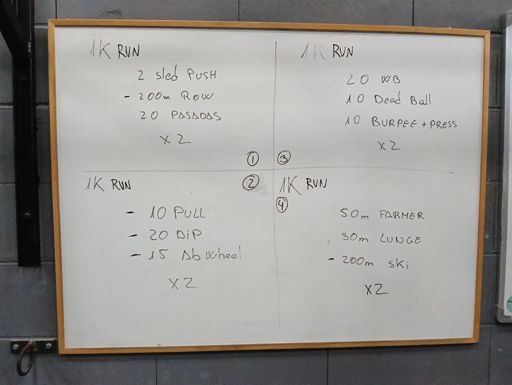 1K RUN
2 sled PUSH
- 200m ROW
20 PASSOAS
x2
①
1K RUN
②
- 10 PULL
- 20 DIP
- 15 Ab wheel
x2
1K RUN
20 WB
10 Dead Ball
10 BURPEE + PRESS
x2
③
1K RUN
④
50m FARMER
30m LUNGE
- 200m SKi
x2